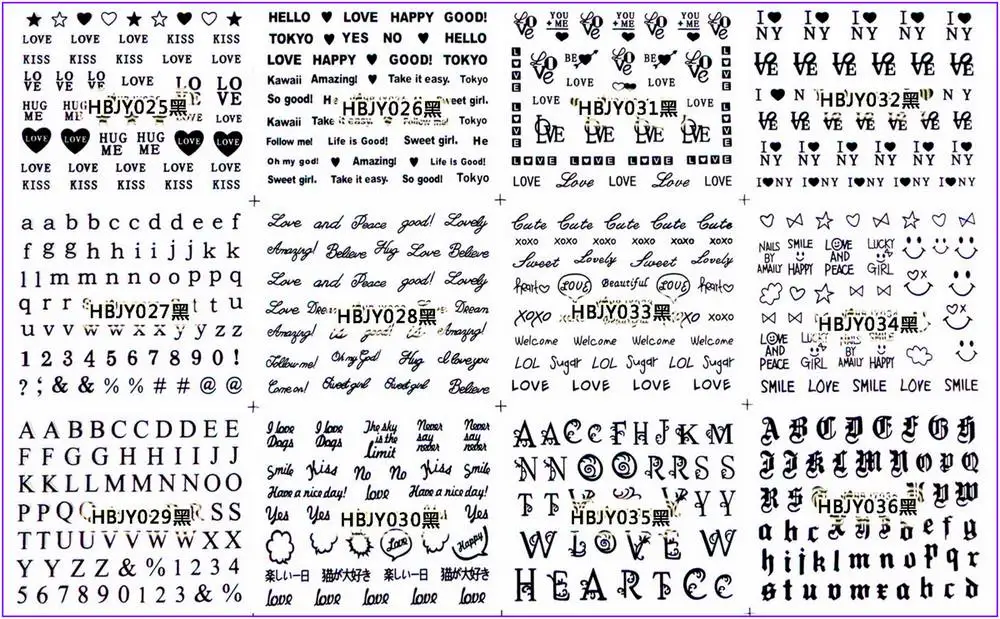 LOVE LOVE LOVE KISS KISS
KISS KISS KISS LOVE LOVE
LO VE LO VE LO VE LOVE LO VE LO VE
HUG ME HUG ME HBJY025黑 LOVE
LOVE LOVE HUG ME HUG ME LOVE LOVE
LOVE LOVE LOVE LOVE LOVE
KISS KISS KISS KISS KISS
HELLO ♥ LOVE HAPPY GOOD!
TOKYO ♥ YES NO ♥ HELLO
LOVE HAPPY ♥ GOOD! TOKYO
Kawaii Amazing! ♥ Take it easy. Tokyo
So good! HBJY026黑 Sweet girl.
Kawaii Take it easy. Follow me! Tokyo
Follow me! Life is Good! Sweet girl. He
Oh my god! ♥ Amazing! ♥ Life is Good!
Sweet girl. Take it easy. So good! Tokyo
LOVE YOU + ME LOVE YOU + ME LOVE YOU + ME LOVE
LOVE BE LOVE BE LOVE LOVE
LOVE LOVE
LOVE HBJY031黑 LOVE
LOVE LOVE LOVE LOVE
L♥VE L♥VE L♥VE L♥VE
LOVE Love LOVE Love LOVE
I♥ NY I♥ NY I♥ NY I♥ NY I♥ NY
LOVE LOVE LOVE LOVE LOVE LOVE
I♥NY HBJY032黑 NY
LOVE LOVE LOVE LOVE LOVE LOVE
I♥ NY I♥ NY I♥ NY I♥ NY I♥ NY I♥ NY
I♥NY I♥NY I♥NY I♥NY I♥NY
a a b b c c d d e e f
f g g h h i i j j k k
l l m m n n o o p p q
q r r s HBJY027黑 t t u
u v v w w x x y y z z
1 2 3 4 5 6 7 8 9 0 !
? ; & & % % # # @ @
Love and Peace good! Lovely
Amazing! Believe Hug Love Believe
Love and Peace good! Lovely
Love Dream HBJY028黑 Love Dream
Amazing! is good! is Amazing!
Follow me! Oh my God! Hug I love you
Come on! Sweet girl Sweet girl Believe
Cute Cute Cute Cute Cute
xoxo xoxo xoxo xoxo xoxo
Sweet Lovely Sweet Lovely
Heart LOVE Beautiful LOVE Heart
XOXO HBJY033黑 XOXO xoxo
Welcome Welcome Welcome Welcome
LOL Sugar LOL LOL Sugar
LOVE LOVE LOVE LOVE
NAILS BY AMAILY SMILE HAPPY LOVE AND PEACE LUCKY GIRL
HBJY034黑
LOVE AND PEACE LUCKY GIRL NAILS BY AMAILY SMILE HAPPY
SMILE LOVE SMILE LOVE SMILE
A A B B C C D D E E
F F G G H H I I J J
K K L L M M N N O O
P P Q HBJY029黑 R S S
T T U U V V W W X X
Y Y Z Z & % 1 2 3 4
5 6 7 8 9 0 1 2 3 & %
I love Dogs I love Dogs The sky is the limit Never say never Never say never
Smile Kiss No No Kiss Smile
Have a nice day! love Have a nice day!
Yes Yes HBJY030黑 Yes
Love Happy
楽しい一日 猫が大好き 楽しい一日 猫が大好き
love love love love love
A A C C F H J K M
N N O O R R S S
T T V HBJY035黑 V Y Y
W LOVE W
H E A R T C C
A B C D E F G H
I J K L M N O P Q
R S HBJY036黑 X V W
a b c d e f g
h i j k l m n o p q r
s t u v w x a b c d